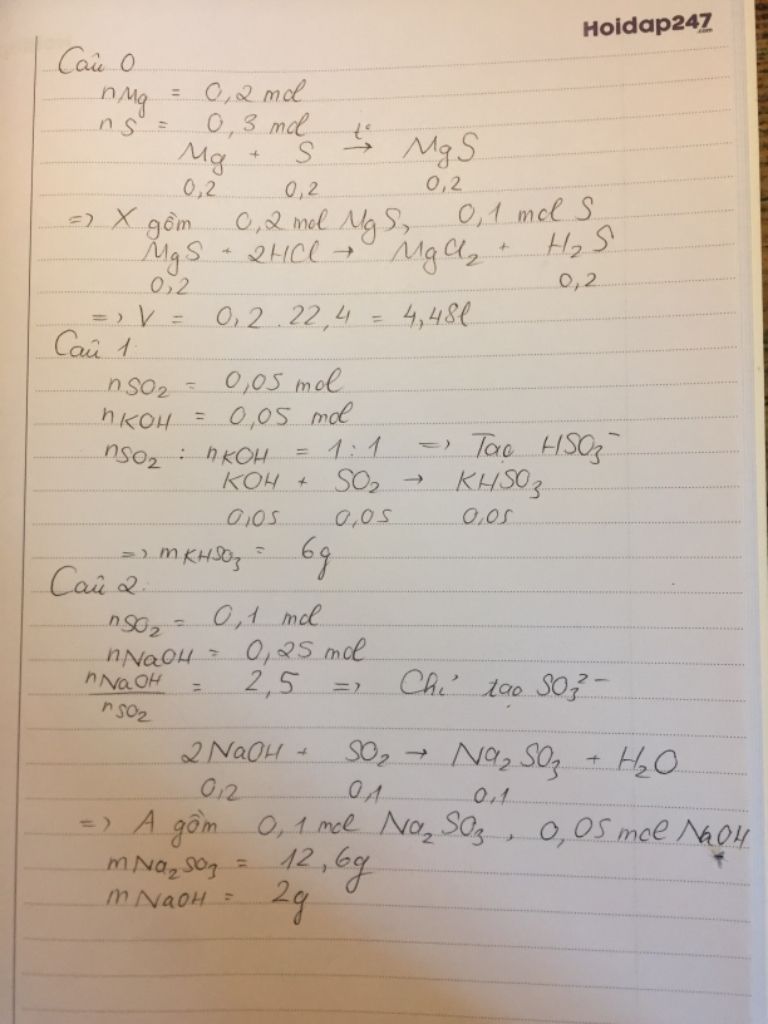 Hoidap247
.com
Câu 0
nMg = 0,2 mol
nS = 0,3 mol
Mg + S →(t°) MgS
0,2 0,2 0,2
=> X gồm 0,2 mol MgS, 0,1 mol S
MgS + 2HCl → MgCl₂ + H₂S
0,2 0,2
=> V = 0,2 . 22,4 = 4,48l
Câu 1:
nSO₂ = 0,05 mol
nKOH = 0,05 mol
nSO₂ : nKOH = 1:1 => Tạo HSO₃⁻
KOH + SO₂ → KHSO₃
0,05 0,05 0,05
=> mKHSO₃ = 6g
Câu 2:
nSO₂ = 0,1 mol
nNaOH = 0,25 mol
nNaOH/nSO₂ = 2,5 => Chỉ tạo SO₃²⁻
2NaOH + SO₂ → Na₂SO₃ + H₂O
0,2 0,1 0,1
=> A gồm 0,1 mol Na₂SO₃, 0,05 mol NaOH
mNa₂SO₃ = 12,6g
mNaOH = 2g